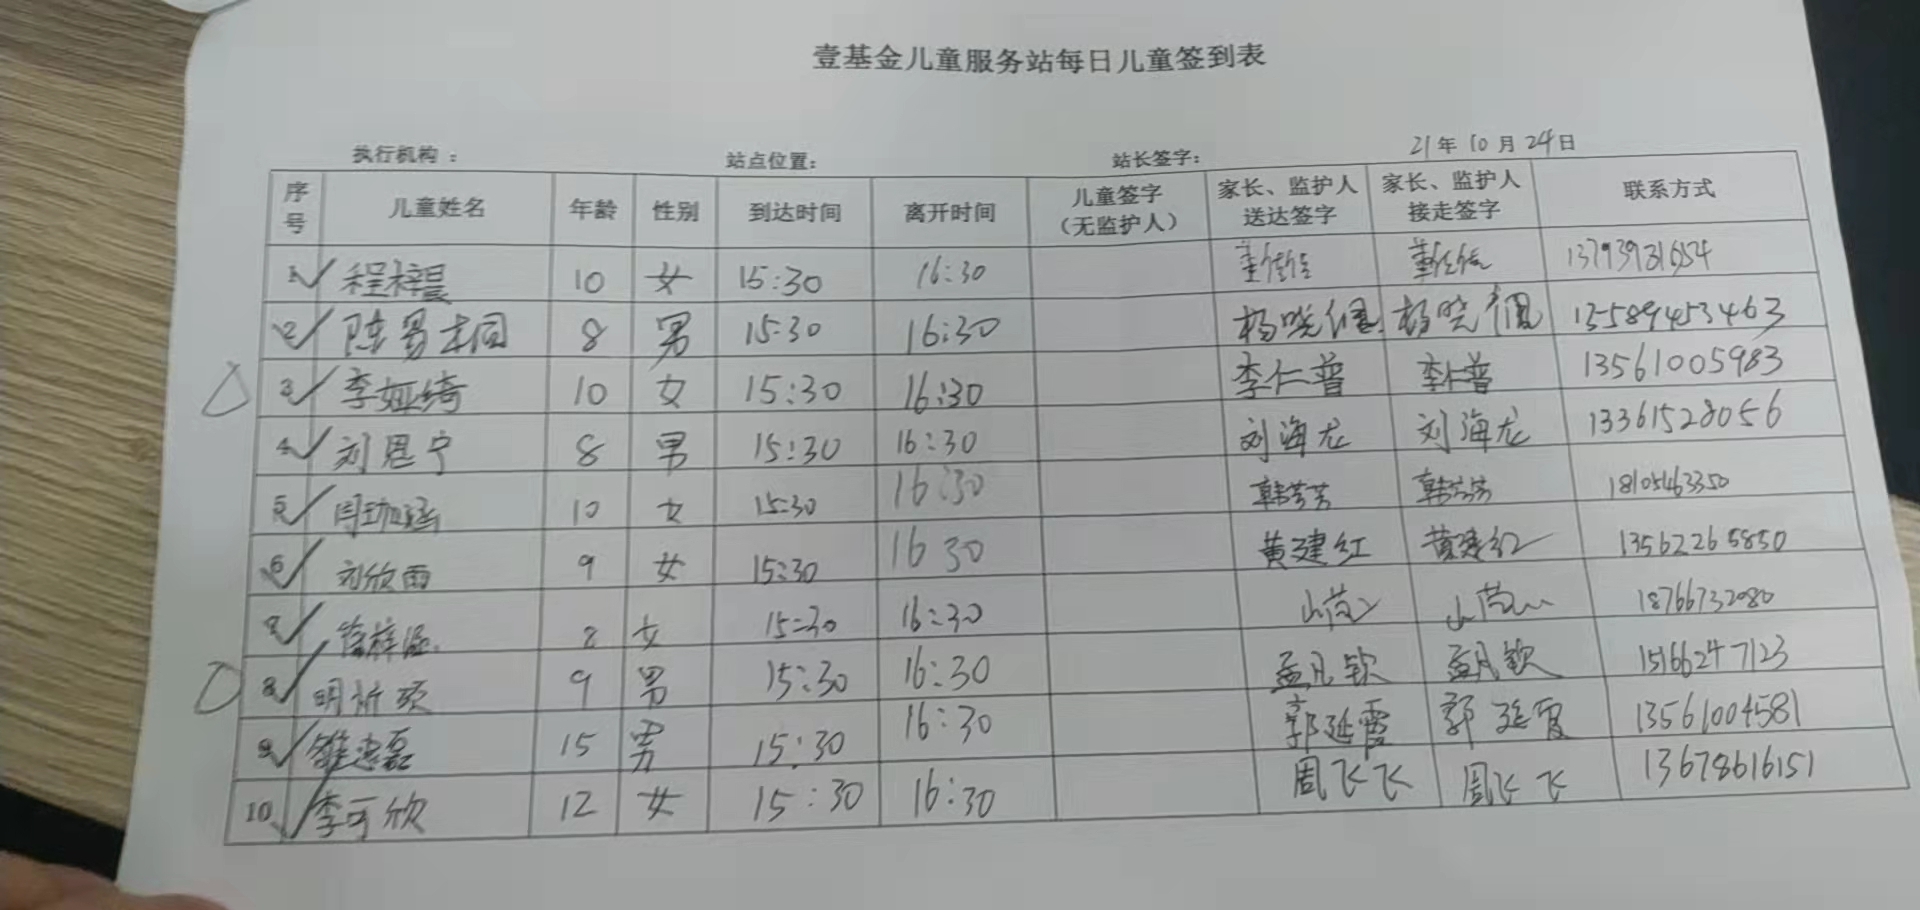 壹基金儿童服务站每日儿童签到表
执行机构： 站点位置： 站长签字： 21年10月24日
序号 儿童姓名 年龄 性别 到达时间 离开时间 儿童签字（无监护人） 家长、监护人送达签字 家长、监护人接走签字 联系方式
1 程梓晨 10 女 15:30 16:30
2 陈易桐 8 男 15:30 16:30 杨晓 杨晓 13589453463
3 李娅绮 10 女 15:30 16:30 李仁普 李仁普 13561005983
4 刘恩宁 8 男 15:30 16:30 刘海龙 刘海龙 13361528056
5 10 女 15:30 16:30 韩芳芳 韩芳芳 18105463350
6 刘欣雨 9 女 15:30 16 30 黄建红 黄建红 13562265850
7 8 女 15:30 16:30 18766732080
8 明 9 男 15:30 16:30 孟凡钦 孟凡钦 15166247123
9 15 男 15:30 16:30 郭延霞 郭延霞 13561004581
10 李可欣 12 女 15:30 16:30 周飞飞 周飞飞 13678616151